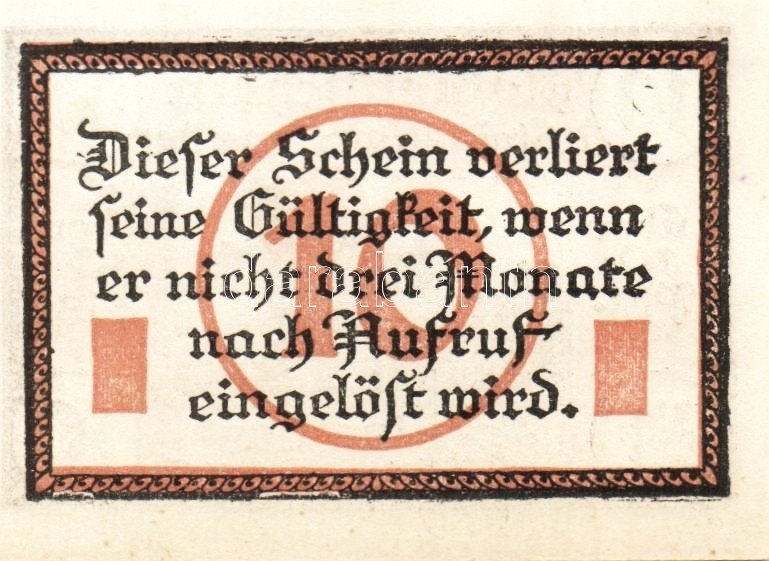 Dieſer Schein verliert
ſeine Gültigkeit, wenn
er nicht drei Monate
nach Aufruf
eingelöſt wird.
10